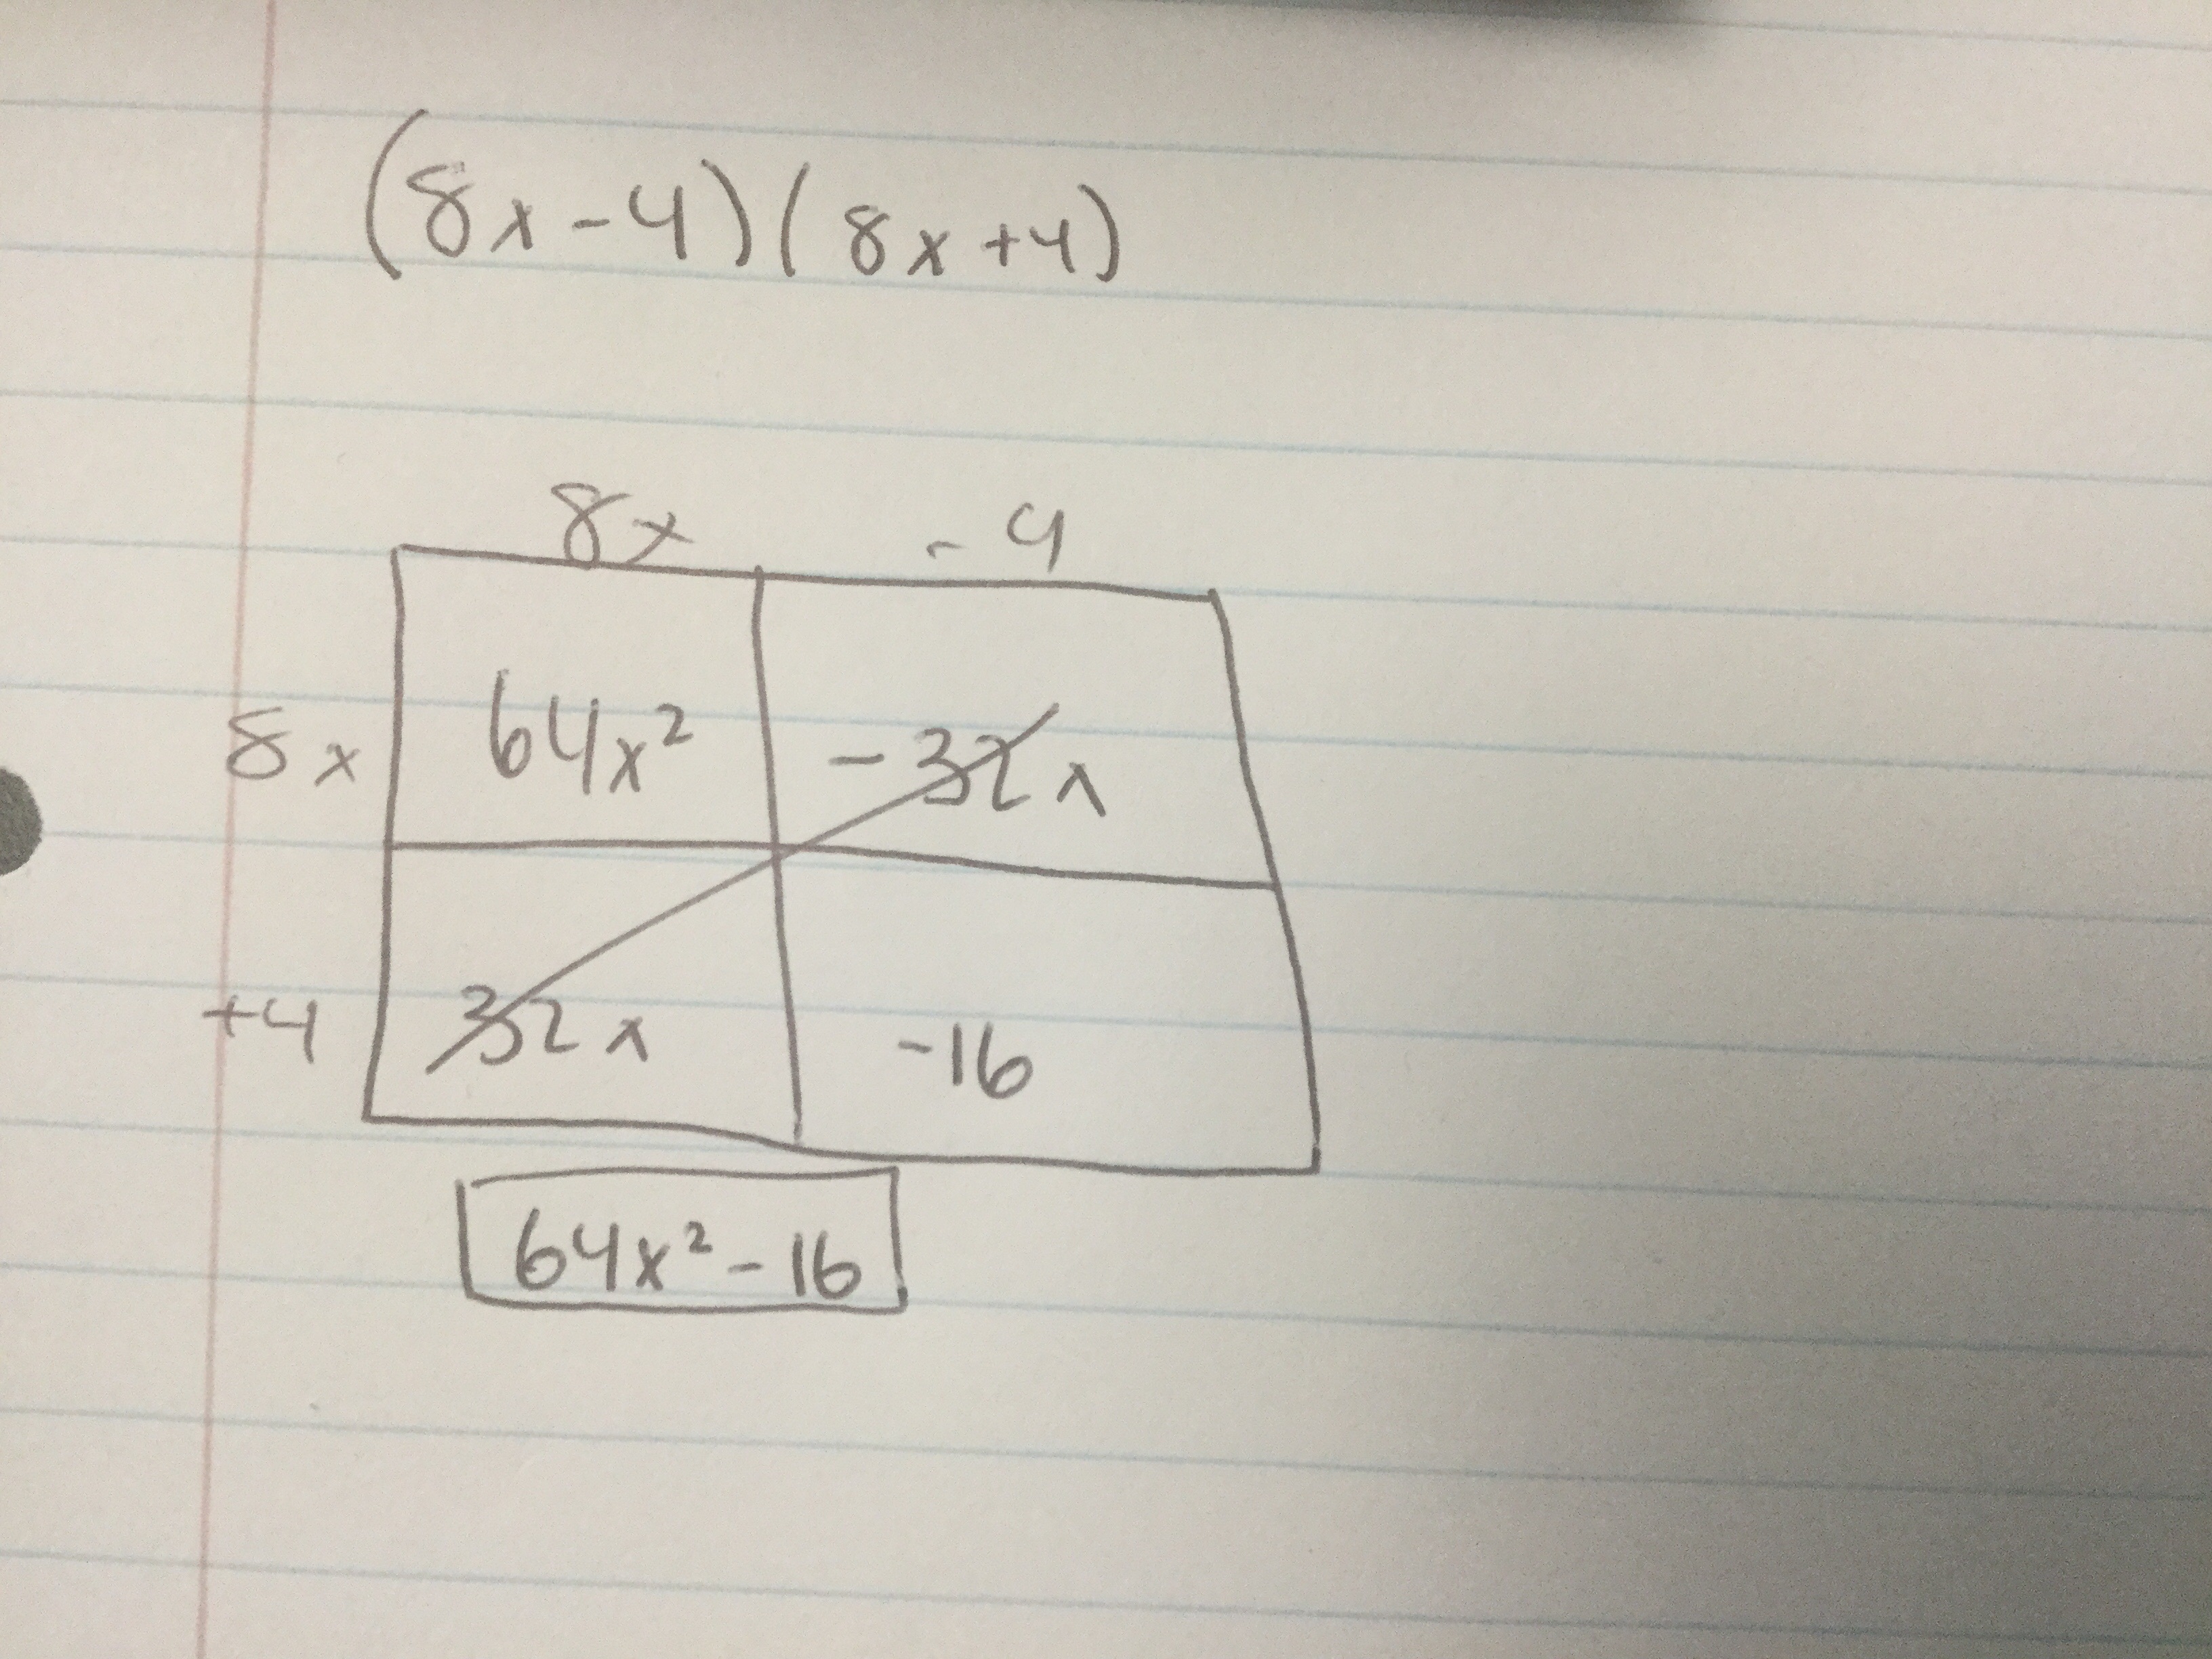 (8x-4)(8x+4)
8x -4
8x 64x² -32x
+4 32x -16
64x²-16